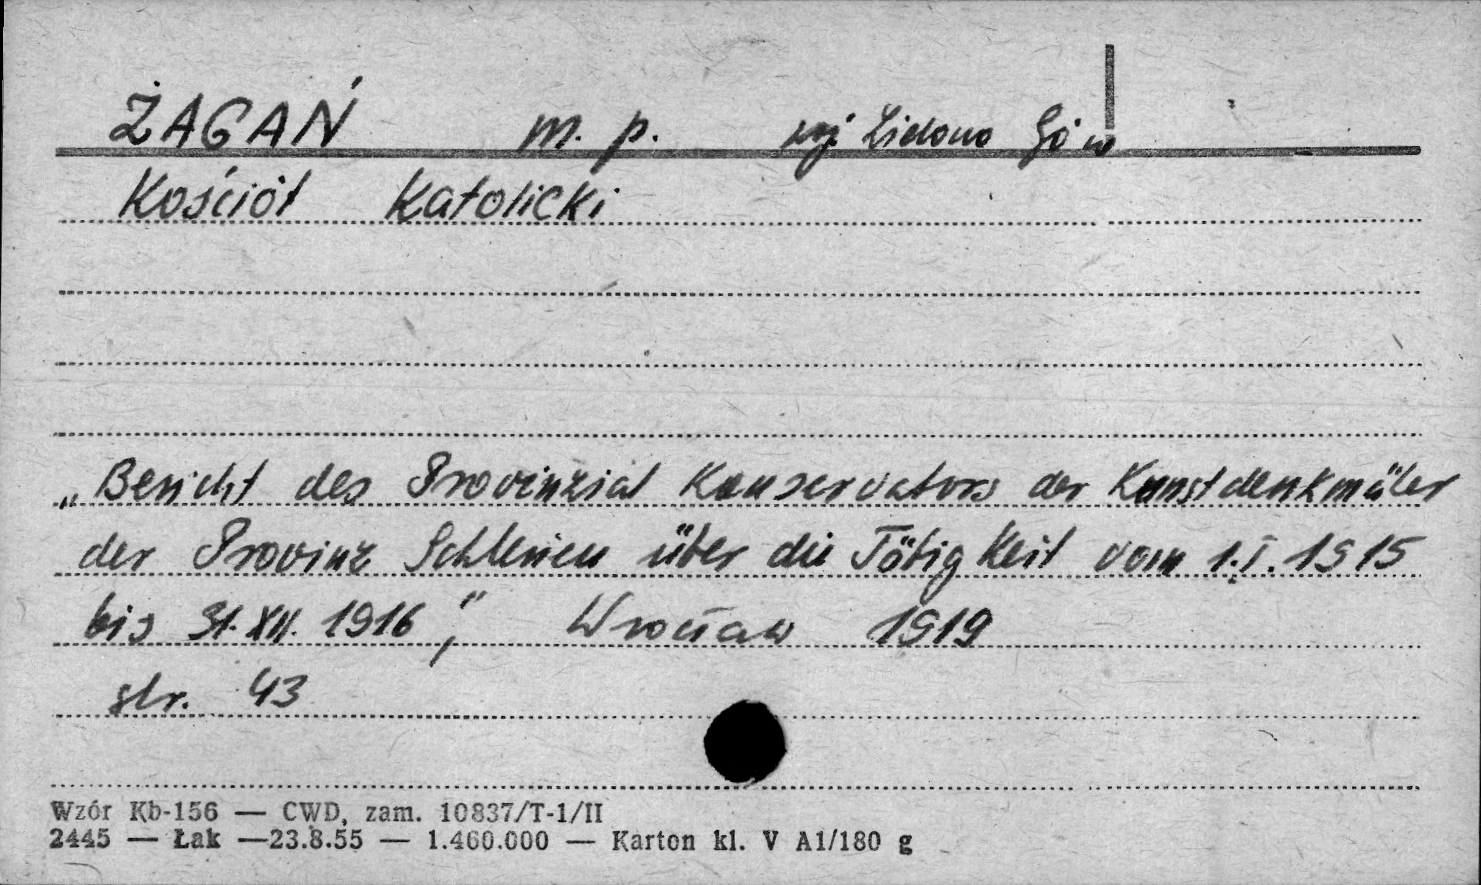 ŻAGAŃ m. p. woj Zielono Gów
Kościół Katolicki
„Bericht des Provinzial Konservators der Kunstdenkmäler
der Provinz Schlesien über die Tätigkeit vom 1.I.1915
bis 31.XII.1916", Wrocław 1919
str. 43
Wzór Kb-156 — CWD, zam. 10837/T-1/II
2445 — Łak —23.8.55 — 1.460.000 — Karton kl. V A1/180 g